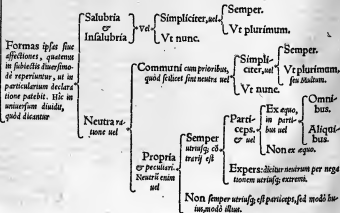 Formas ipsas siue
affectiones, quatenus
in subiectis diuersimo-
dè reperiuntur, ut in
particularium declara
tione patebit. Hîc in
uniuersum diuidũ,
quòd dicantur
Salubria
&
Insalubria
Vel
Simpliciter, uel
Semper.
Vt plurimum.
Vt nunc.
Neutra ra-
tione uel
Communi cum prioribus,
quòd scilicet sint neutra uel
Simpli-
citer, uel
Semper.
Vt plurimum,
seu Multum.
Vt nunc.
Propria
& peculiari.
Neutrũ enim
uel
Semper
utriusq; cõ
trarij est
Parti-
ceps.
& uel
Ex æquo,
in parti-
bus uel
Omni-
bus.
Aliqui-
bus.
Non ex æquo.
Expers: dicitur neutrum per nega
tionem utriusq; extremi.
Non semper utriusq; est particeps, sed modò hu-
ius, modò illius.